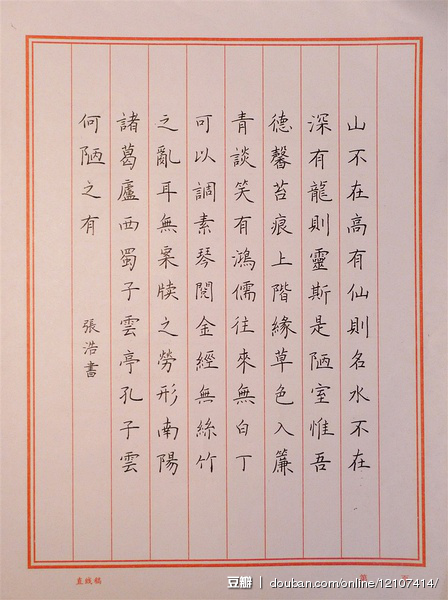 山不在高有仙則名水不在
深有龍則靈斯是陋室惟吾
德馨苔痕上階緣草色入簾
青談笑有鴻儒往來無白丁
可以調素琴閱金經無絲竹
之亂耳無案牍之勞形南陽
諸葛廬西蜀子雲亭孔子雲
何陋之有
張浩書
直线稿
豆瓣 | douban.com/online/12107414/